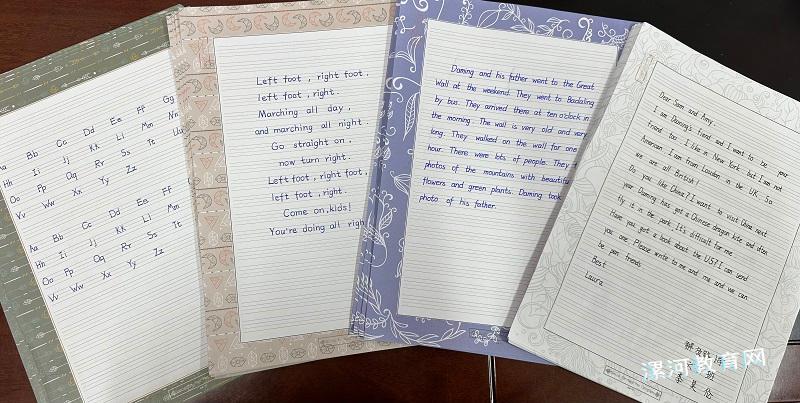 Aa Bb Cc Dd Ee Ff Gg
Hh Ii Jj Kk Ll Mm Nn
Oo Pp Qq Rr Ss Tt Uu
Vv Ww Xx Yy Zz
Aa Bb Cc Dd Ee Ff
Hh Ii Jj Kk Ll Mm
Oo Pp Qq Rr Ss Tt
Vv Ww Xx Yy Zz
Left foot, right foot.
left foot, right.
Marching all day,
and marching all night.
Go straight on,
now turn right.
Left foot, right foot,
left foot, right.
Come on, kids!
You're doing all righ
Daming and his father went to the Great
Wall at the weekend. They went to Badaling
by bus. They arrived there at ten o'clock in
the morning. The wall is very old and very
long. They walked on the wall for one
hour. There were lots of people. They
photos of the mountains with beautiful
flowers and green plants. Daming took
photo of his father.
Dear Sam and Amy,
I am Daming's fiend and I want to be your
friend too. I like in New York, but I am not
American. I am from London in the UK. So
we are all British!
Do you like China? I want to visit China next
year. Daming has got a Chinese dragon kite and often
fly it in the park. It's difficult for me
Have you got a book about the US? I can send
you one. Please write to me and and we can
be pen friends
Best
Laura
班
漯河教育网